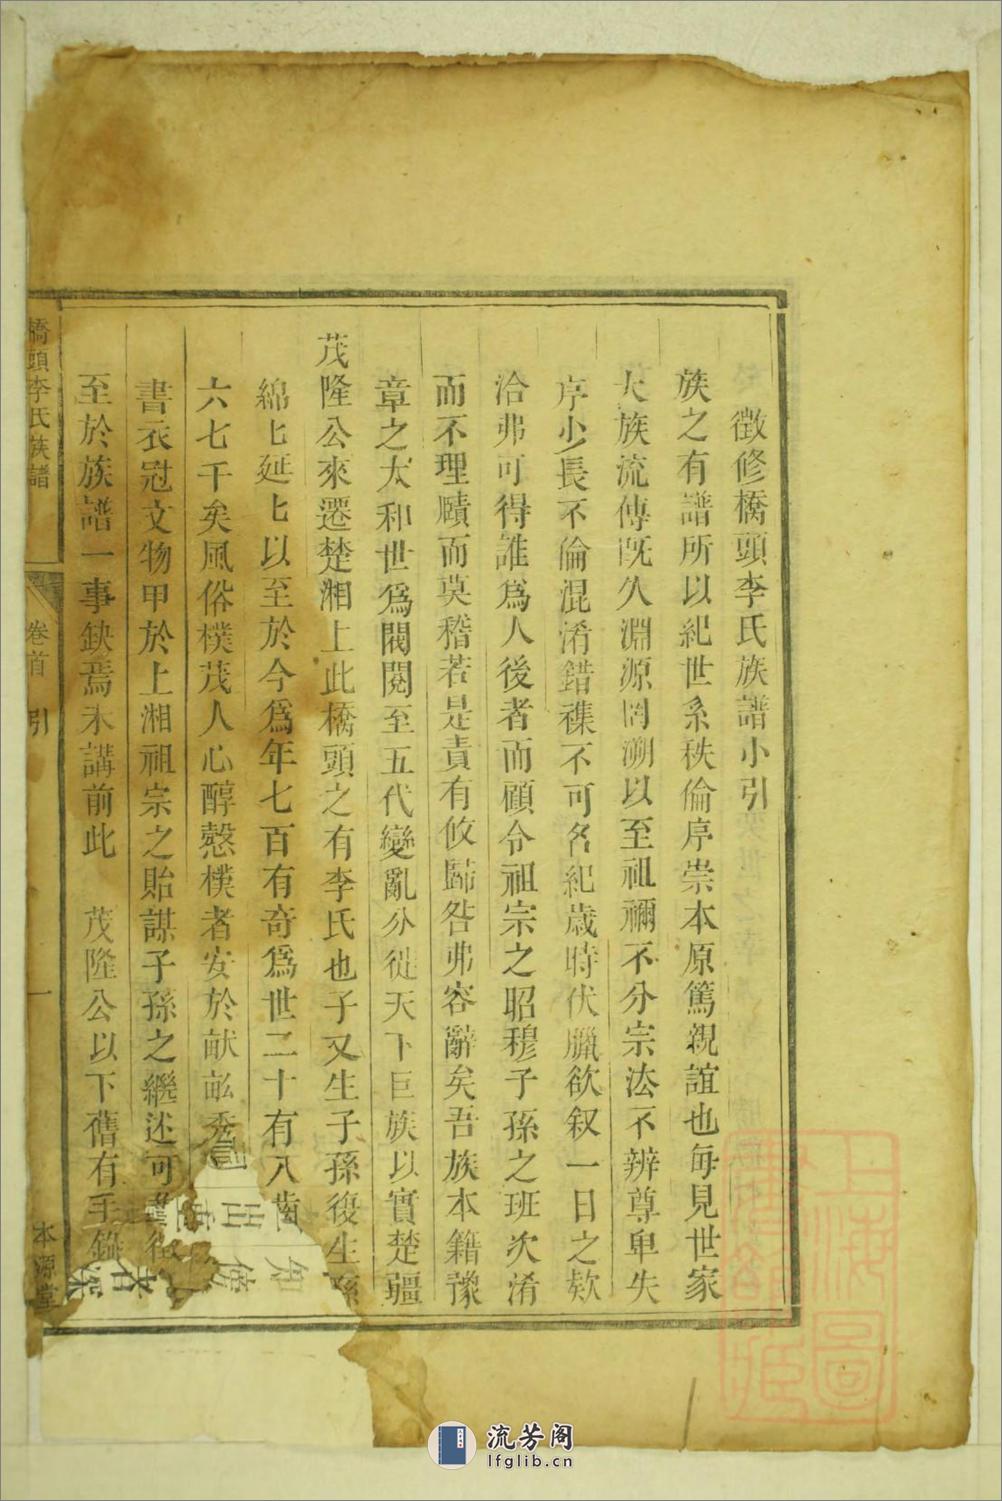 徵修橋頭李氏族譜小引
族之有譜所以紀世系秩倫序崇本原篤親誼也每見世家
大族流傳既久淵源罔溯以至祖禰不分宗法不辨尊卑失
序少長不倫混淆錯襍不可名紀歲時伏臘欲叙一日之欵
洽弗可得誰為人後者而顧令祖宗之昭穆子孫之班次淆
而不理賾而莫稽若是責有攸歸咎弗容辭矣吾族本籍豫
章之太和世爲閥閱至五代變亂分徙天下巨族以實楚疆
茂隆公來遷楚湘上此橋頭之有李氏也子又生子孫復生孫
綿匕延匕以至於今爲年七百有奇爲世二十有八齒
六七千矣風俗樸茂人心醇慤樸者安於畎畝秀
書衣冠文物甲於上湘祖宗之貽謀子孫之繼述可
至於族譜一事缺焉未講前此 茂隆公以下舊有手錄
橋頭李氏族譜
卷首 引
一
本源堂
上海圖書館藏
流芳阁
lfglib.cn